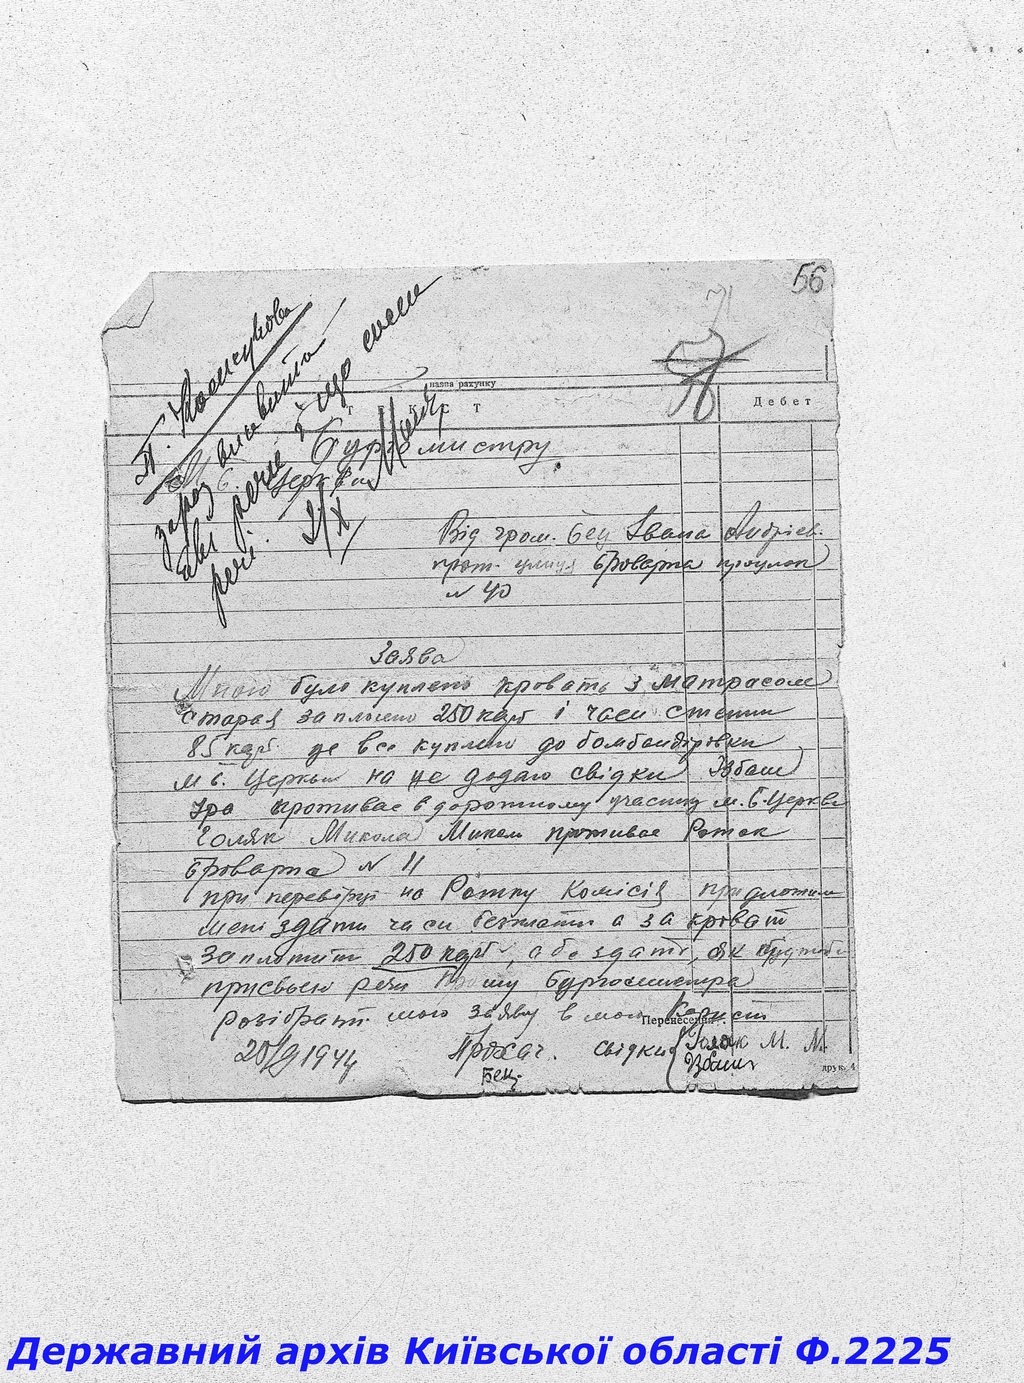 56
назва рахунку
Дебет
Т К С Т
Бургомистру
м Б. Церкви
зараз
речі і що
речі.
Від гром. Бец Івана Андрієв.
прож. улиця Броварна проулок
№ 40
Заява
Мною було куплено кровать з матрасом
старая заплочено 250 карб і часи стенни
85 карб. це все куплено до бомбандіровки
м Б. Церкви на це додаю свідки Ізбаш
Іра проживає в дорожному участку м. Б-Церкв
Голяк Микола Микол проживає Роток
Броварна № 11
при перевірці на Ротку Комісія придложили
мені здати часи безплатно а за кроват
заплотит 250 карб, або здати, як
присвоєю речі Прошу бургомистра
розібрат. мою заяву в мою Користь
Перенесення
20/IX 1941
Прохач. свідки Голяк М. М.
Бец. Ізбаш
друк. 4
Державний архів Київської області Ф.2225